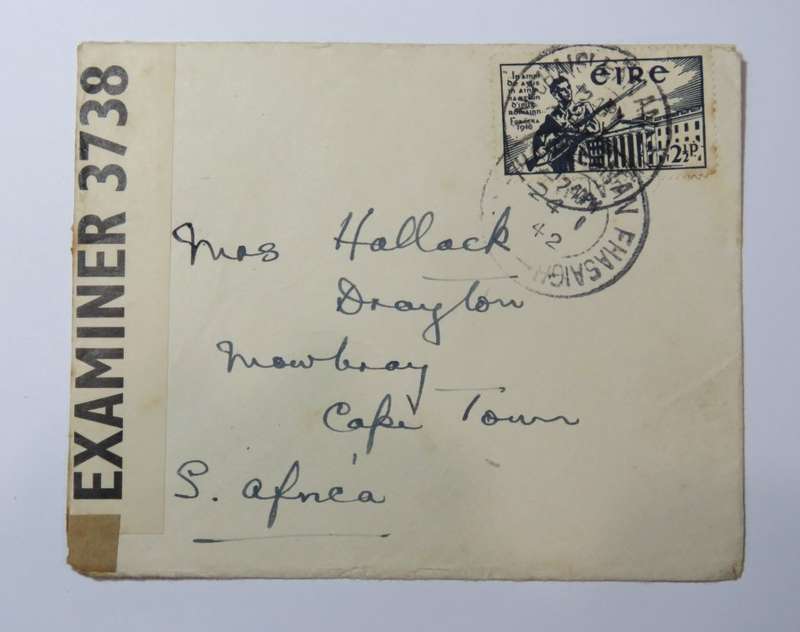 EXAMINER 3738
ÉIRE
1916
2½p
AN FHASAIGH
24 1
42
Mrs Hallack
Drayton
Mowbray
Cape Town
S. Africa